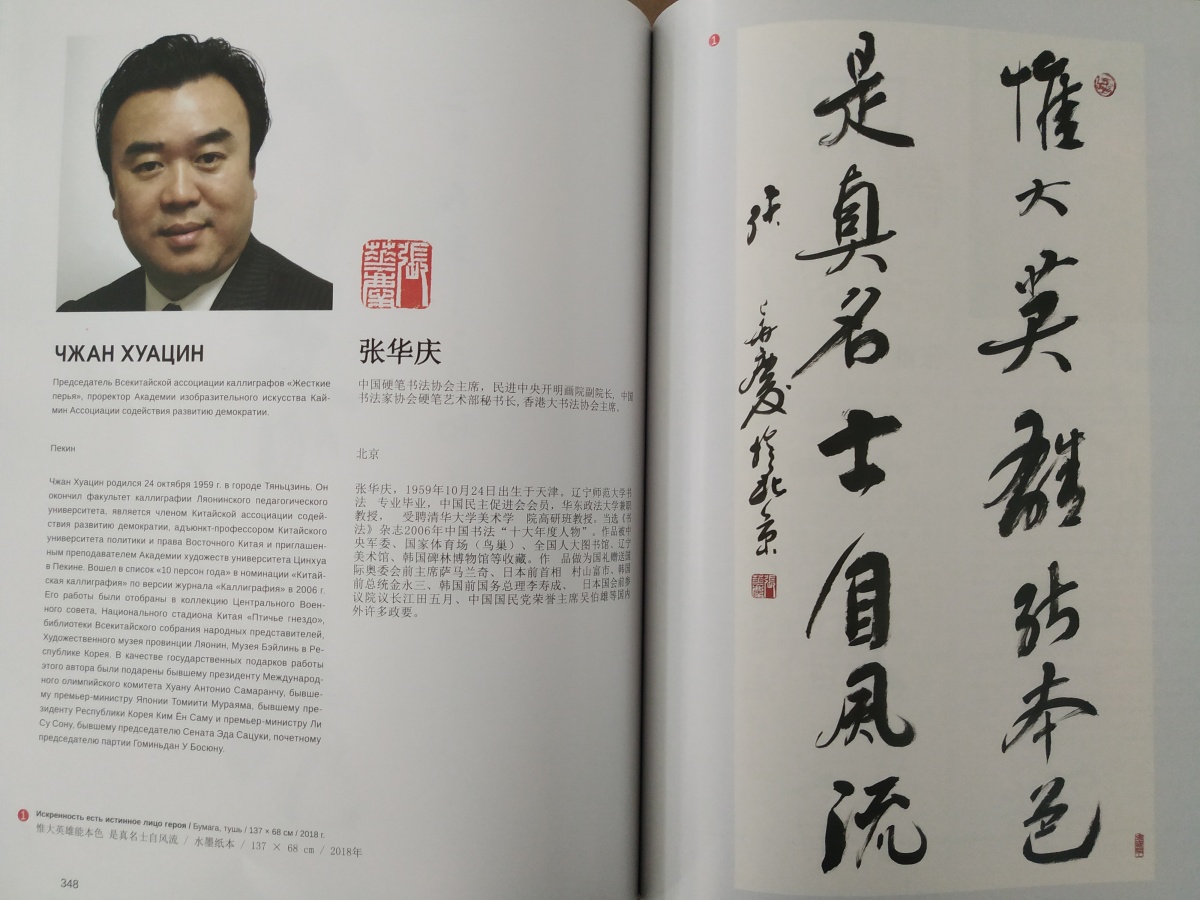 ЧЖАН ХУАЦИН
Председатель Всекитайской ассоциации каллиграфов «Жесткие
перья», проректор Академии изобразительного искусства Кай-
мин Ассоциации содействия развитию демократии.
Пекин
Чжан Хуацин родился 24 октября 1959 г. в городе Тяньцзинь. Он
окончил факультет каллиграфии Ляонинского педагогического
университета, является членом Китайской ассоциации содей-
ствия развитию демократии, адъюнкт-профессором Китайского
университета политики и права Восточного Китая и приглашен-
ным преподавателем Академии художеств университета Цинхуа
в Пекине. Вошел в список «10 персон года» в номинации «Китай-
ская каллиграфия» по версии журнала «Каллиграфия» в 2006 г.
Его работы были отобраны в коллекцию Центрального Воен-
ного совета, Национального стадиона Китая «Птичье гнездо»,
библиотеки Всекитайского собрания народных представителей,
Художественного музея провинции Ляонин, Музея Бэйлинь в Ре-
спублике Корея. В качестве государственных подарков работы
этого автора были подарены бывшему президенту Международ-
ного олимпийского комитета Хуану Антонио Самаранчу, бывше-
му премьер-министру Японии Томиити Мураяма, бывшему пре-
зиденту Республики Корея Ким Ён Саму и премьер-министру Ли
Су Сону, бывшему председателю Сената Эда Сацуки, почетному
председателю партии Гоминьдан У Босюну.
張華慶
张华庆
中国硬笔书法协会主席，民进中央开明画院副院长，中国
书法家协会硬笔艺术部秘书长，香港大书法协会主席。
北京
张华庆，1959年10月24日出生于天津。辽宁师范大学书
法 专业毕业，中国民主促进会会员，华东政法大学兼职
教授， 受聘清华大学美术学 院高研班教授，当选《书
法》杂志2006年中国书法“十大年度人物”。作品被中
央军委、国家体育场（鸟巢）、全国人大图书馆、辽宁
美术馆、韩国碑林博物馆等收藏。作 品做为国礼赠送国
际奥委会前主席萨马兰奇、日本前首相 村山富市、韩国
前总统金永三、韩国前国务总理李寿成、 日本国会前参
议院议长江田五月、中国国民党荣誉主席吴伯雄等国内
外许多政要。
1 Искренность есть истинное лицо героя / Бумага, тушь / 137 × 68 см / 2018 г.
惟大英雄能本色 是真名士自风流 / 水墨纸本 / 137 × 68 cm / 2018年
348
1
惟大英雄能本色
是真名士自风流
张华庆于北京